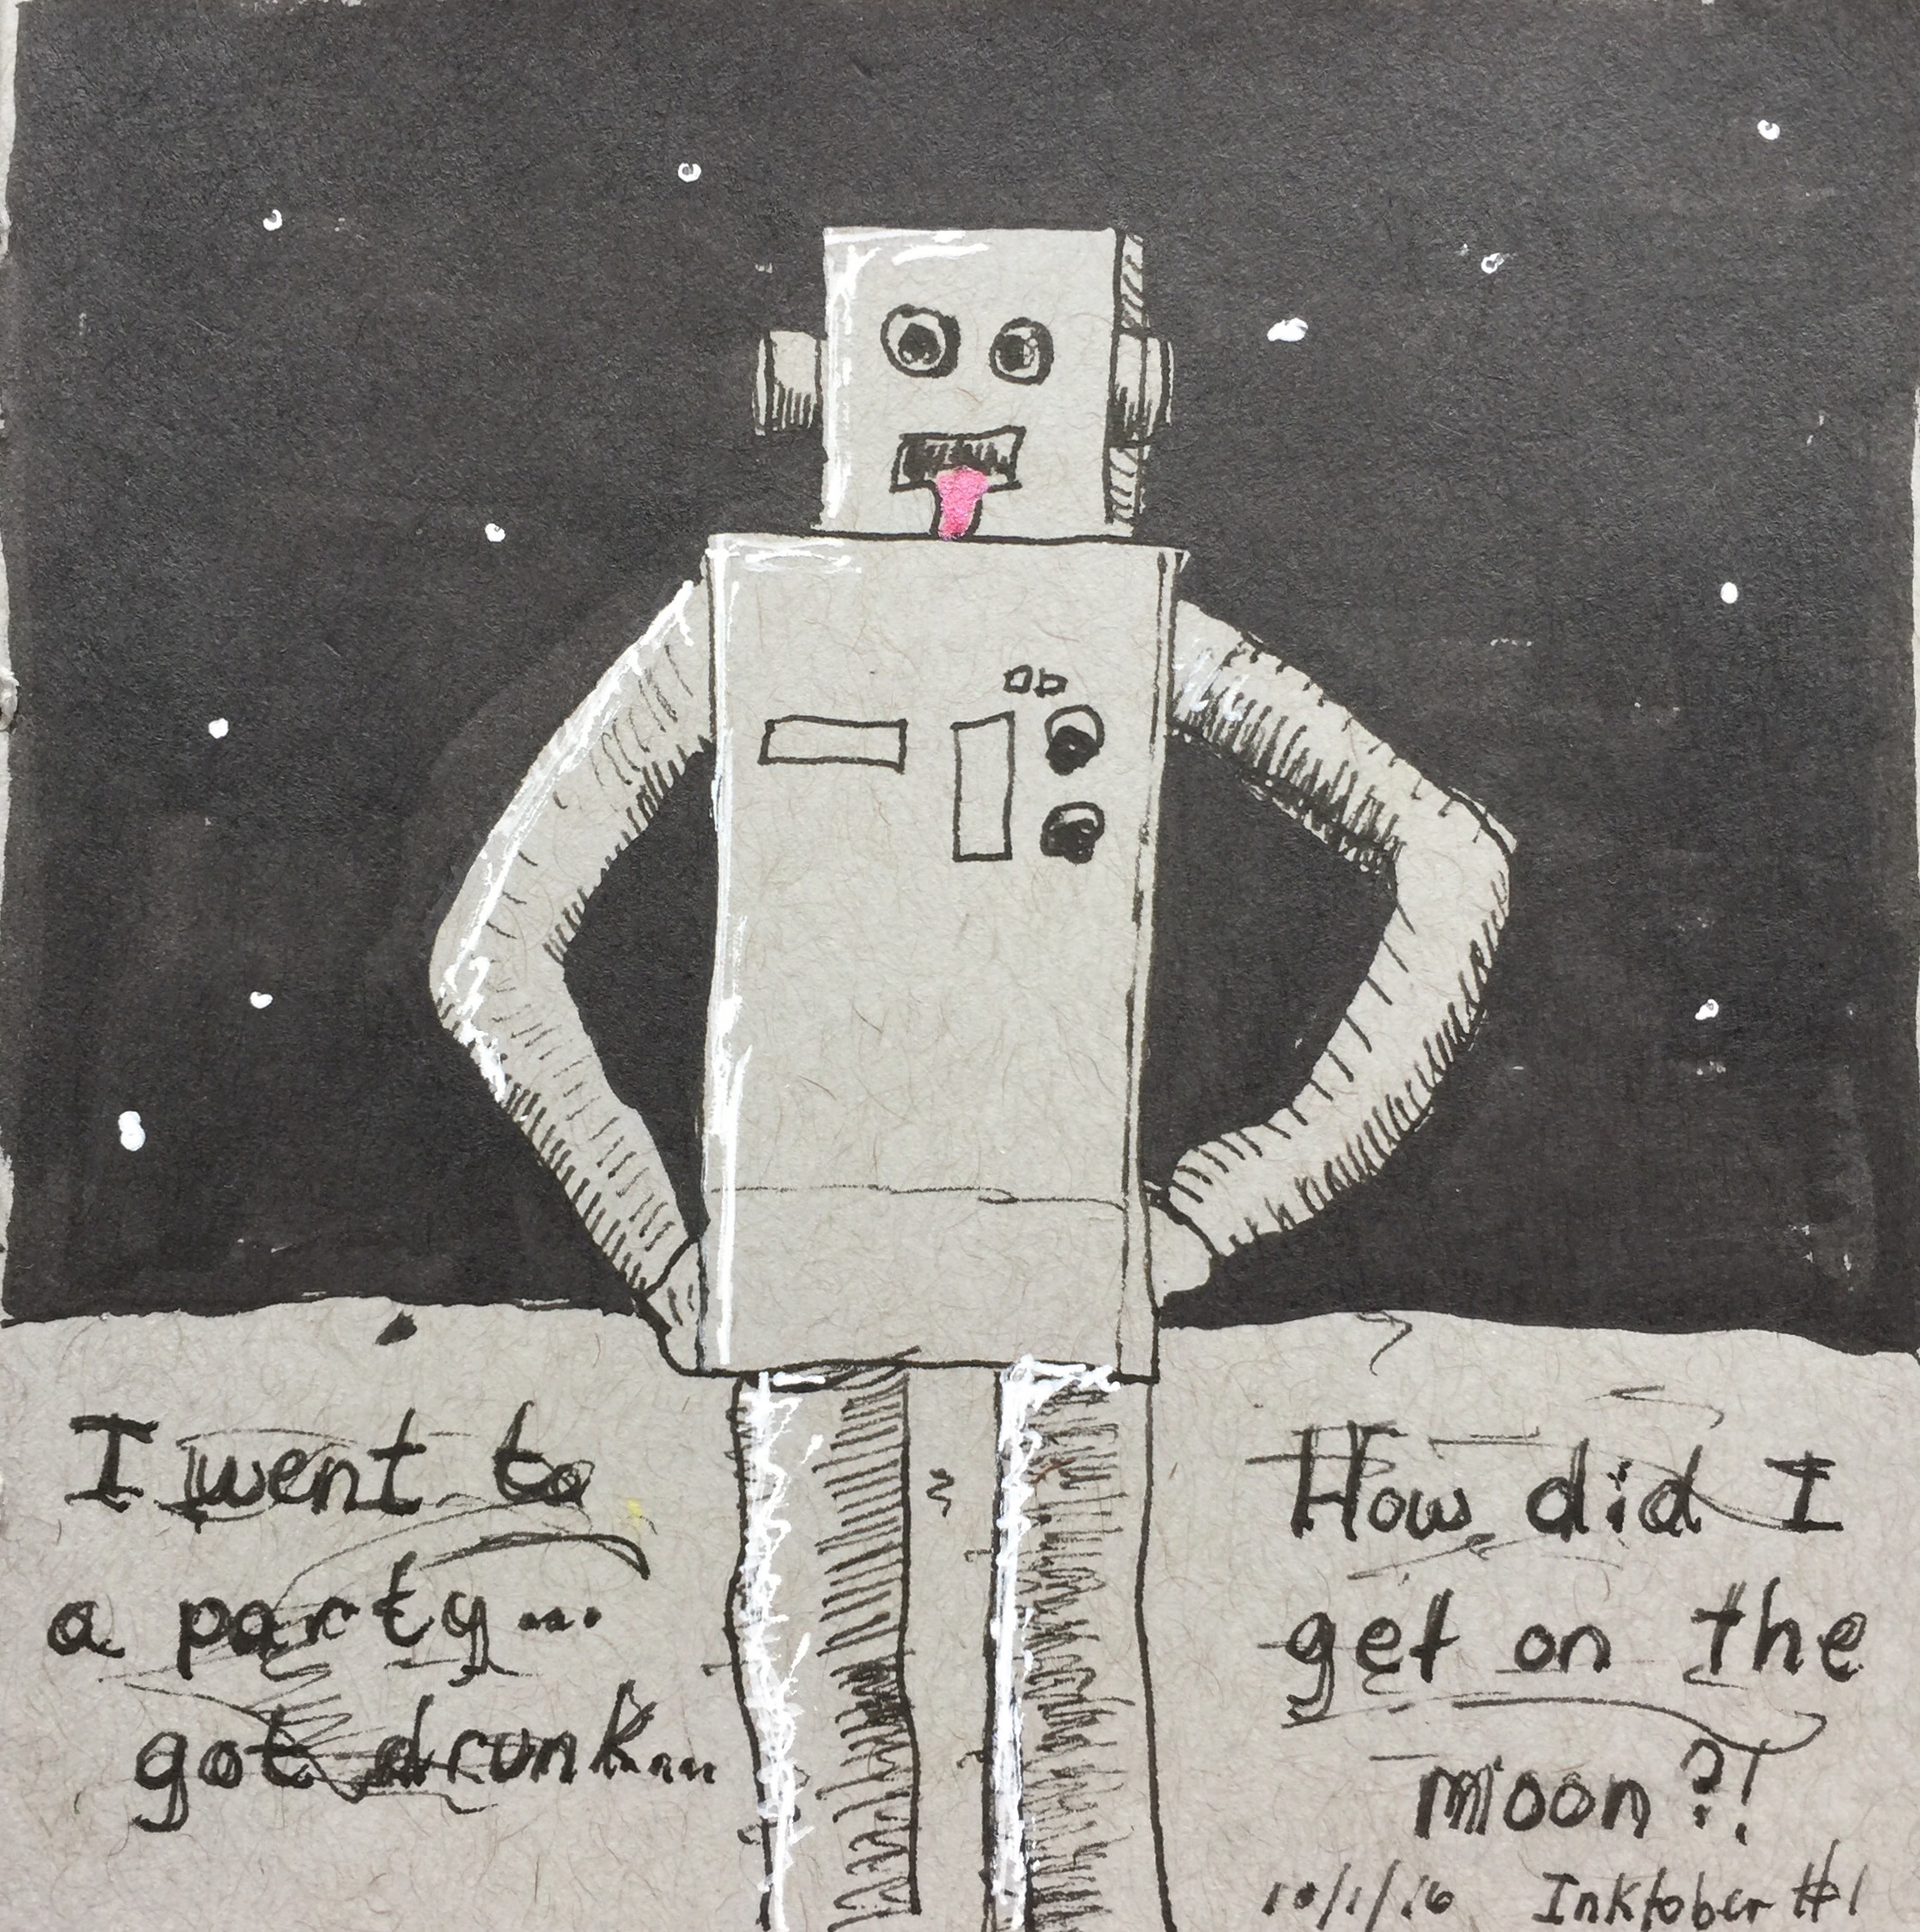 I went to
a party...
got drunk....
How did I
get on the
moon?!
10/1/16 Inktober #1